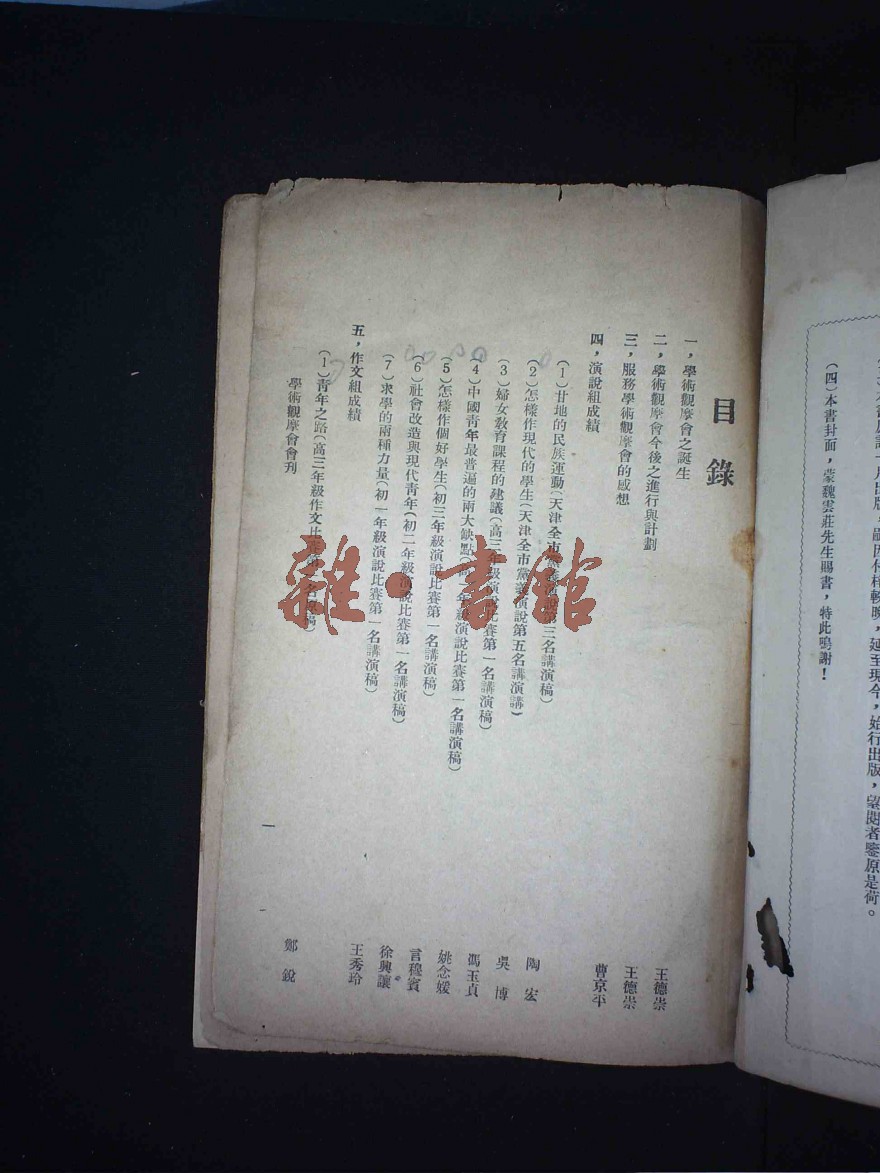 (四)本書封面,蒙魏雲莊先生賜書,特此鳴謝!
目錄
一,學術觀摩會之誕生 王德崇
二,學術觀摩會今後之進行與計劃 王德崇
三,服務學術觀摩會的感想 曹京平
四,演說組成績
(1)甘地的民族運動(天津全市黨義演說第三名講演稿) 陶宏
(2)怎樣作現代的學生(天津全市黨義演說第五名講演講) 吳博
(3)婦女教育課程的建議(高三年級演說比賽第一名講演稿) 馮玉貞
(4)中國青年最普遍的兩大缺點 年級演說比賽第一名講演稿) 姚念媛
(5)怎樣作個好學生(初三年級演說比賽第一名講演稿) 言穆賓
(6)社會改造與現代青年(初二年級演說比賽第一名講演稿) 徐興讓
(7)求學的兩種力量(初一年級演說比賽第一名講演稿) 王秀玲
五,作文組成績
(1)青年之路(高三年級作文比賽第 名 稿) 鄭銳
學術觀摩會會刊
一
雜·書館